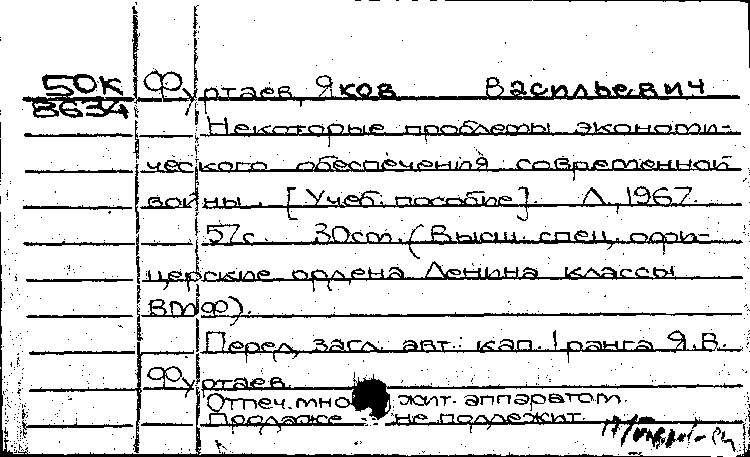 50К Фуртаев, Яков Васильевич
8634
Некоторые проблемы экономи-
ческого обеспечения современной
войны. [Учеб. пособие]. Л., 1967.
57с. 30см. (Высш. спец. офи-
церские ордена Ленина классы
ВМФ).
Перед загл. авт.: кап. 1 ранга Я.В.
Фуртаев.
Отпеч. множит. аппаратом.
Продаже не подлежит